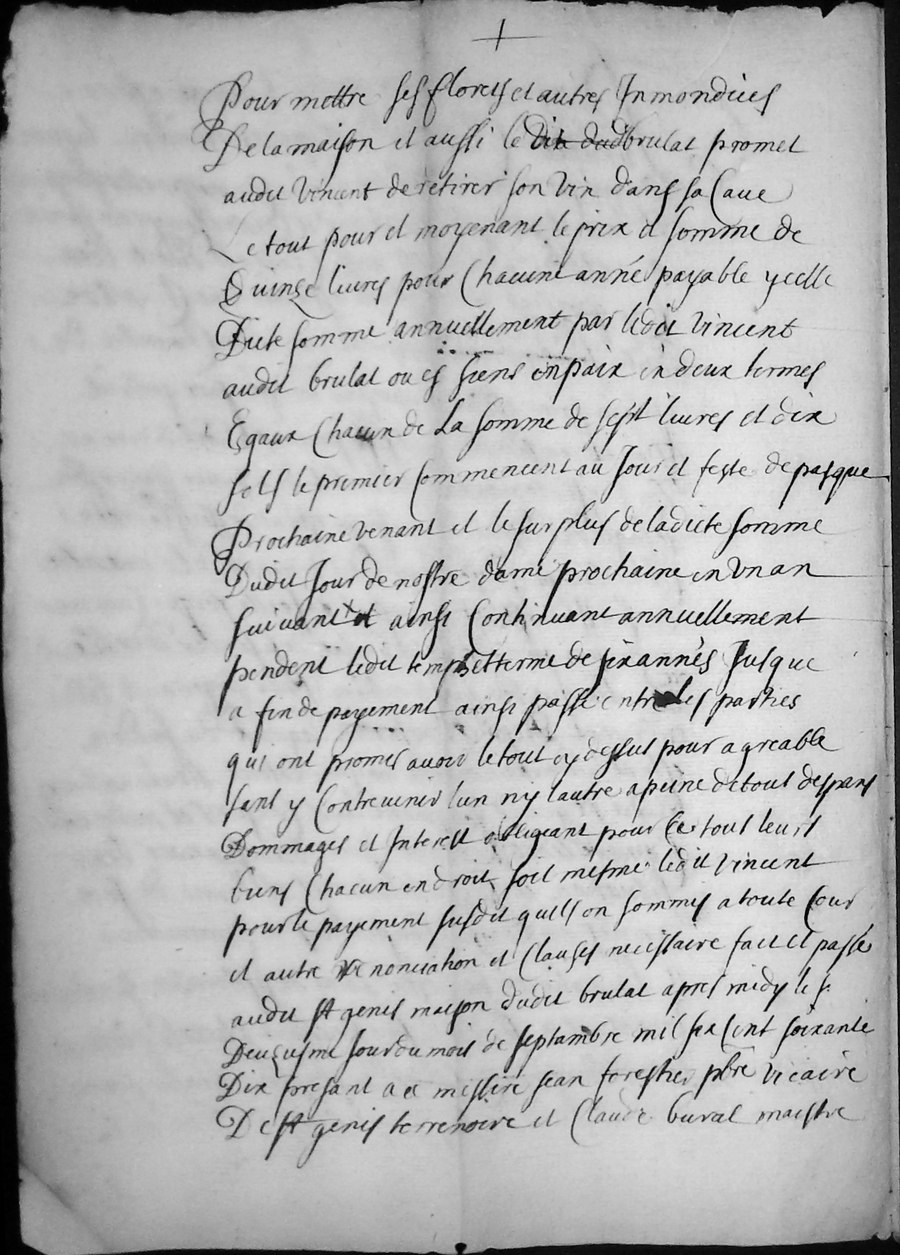 Pour mettre ses florets et autres Inmondices
De la maison et aussi le dit dud brulat promet
audit vincent de retirer son vin dans sa Cave
Le tout pour et moyenant le prix et somme de
Quinze livres pour Chacune année payable ycelle
Dicte somme annuellement par ledit vincent
audit brulat ou es siens en paix en deux termes
Egaux Chacun de La somme de sept livres et dix
sols le premier Commencent au Jour et feste de pasque
Prochaine venant et le surplus de ladicte somme
Dudit Jour de nostre dame prochaine en un an
suivant et ainsi Continuant annuellement
pendent ledit temps et terme de six annés Jusque
a fin de payement ainsi passé entre les parties
qui ont promis avoir le tout cy dessus pour agreable
sans y Contrevenir lun ny lautre a peine de tout despans
Dommages et Interest obligeant pour ce tout leurs
biens Chacun en droit soit mesme ledit vincent
pour le payement susdit quils on sommis a toute Cour
et autre renonciation et Clauses necissaire fait et passé
audit st genis maison dudit brulat apres midy le
Deuzusme Jour du mois de septambre mil six Cent soixante
Dix presant a ce missire Jean forestier pbre vicaire
De st genis terrenoire et Claude bural maistre